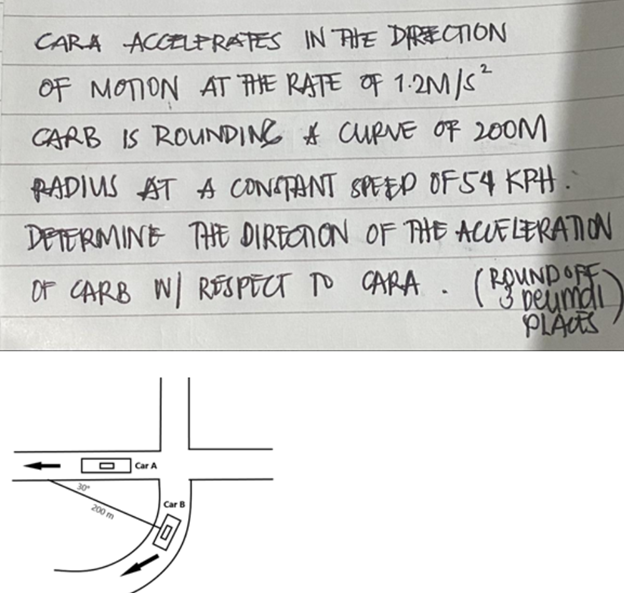 CAR A ACCELERATES IN THE DIRECTION
OF MOTION AT THE RATE OF 1.2M/S²
CAR B IS ROUNDING A CURVE OF 200M
RADIUS AT A CONSTANT SPEED OF 54 KPH.
DETERMINE THE DIRECTION OF THE ACCELERATION
OF CAR B W/ RESPECT TO CAR A. (ROUND OFF
3 decimal
PLACES)
Car A
30°
200 m
Car B